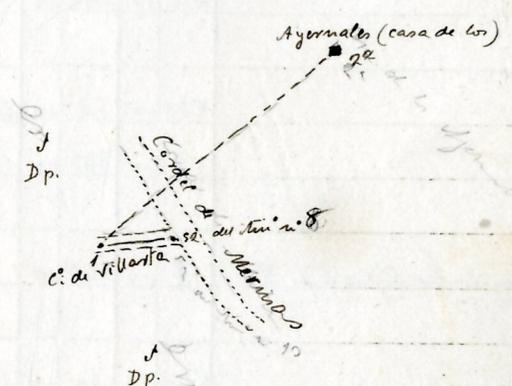 Agernales (casa de los)
2ª
Dp.
Cordel de Merinas
sª. del itinº nº 8
1
Cº. de Villarta
Dp.